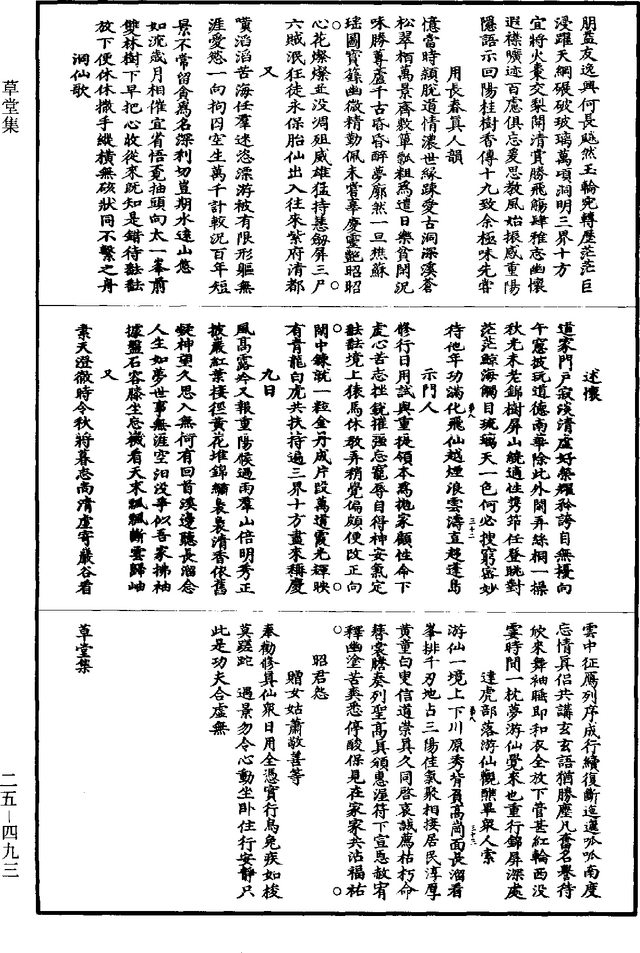 朋益友逸興何長飚然玉輪宛轉歷茫茫巨
浸躍天網碾破玻璃萬頃洞明三界十方
宜將火棗交梨開清賞勝飛觴肆雅志幽懷
遐襟曠迹百慮俱忘爰思教風始振感重陽
隱語示回陽桂樹香傳十九致余極味先嘗
用長春真人韻
憶當時頓脫道情濃世緣踈愛古洞深溪蒼
松翠栢萬景齊敷單瓢粗爲道日樂貧閑況
味勝尊盧千古昏昏醉夢廓然一旦樵蘇
瑤圖寶籙幽微精勤佩未嘗辜慶靈艷昭昭
心花燦燦並没凋殂威雄猛持慧劒屏三尸
六賊泯狂徒永保胎仙出入往來紫府清都
又
嘆滔滔苦海任羣迷恣深游被有限形軀無
涯愛慾一向拘囚空生萬千計較況百年短
景不常留貪爲名深利切豈期水遠山悠
如流歲月相催宜省悟蚤抽頭向太一峯前
雙林樹下早把心收從來既知是錯待㪍㪍
放下便休休撒手縱橫無礙狀同不繫之舟
洞仙歌
述懷
道家門戶寂淡清虛好榮耀矜誇自無擾向
午窻披玩道德南華除此外閑弄絲桐一操
秋光未老錦樹屏山統適性攜筇任登眺對
茫茫鯨海觸目琉璃天一色何必搜窮密妙
待他年功滿化飛仙越煙浪雲濤直趍蓬島
示門人
修行日用試與重提領本爲抛家顧性命下
虛心苦志挫銳摧强忘寵辱自得神安氣定
㪍㪍境上猿馬休教弄稍覺偏頗便改正向
閑中鍊就一粒金丹成片段萬道霞光輝映
有青龍白虎共扶持遍三界十方盡來稱慶
九日
風高露冷又報重陽候過雨羣山倍明秀正
披巖紅葉接徑黃花堆錦繡裊裊清香依舊
凝神望久思入無何有回首溪邊聽長溜念
人生如夢世事無涯空汩没爭似吾家拂袖
據盤石容膝坐忘機看天末飄飄斷雲歸岫
又
素天澄徹時令秋將暮志尚清虛寄巖谷看
雲中征鴈列序成行續復斷迤邐呱呱南度
忘情真侶共講玄玄語猶勝塵凡奮名譽待
欣來舞袖睡即和衣全放下管甚紅輪西没
霎時間一枕夢游仙覺來也重行錦屏深處
達虎部落游仙觀醮畢衆人索
游仙一境上下川原秀背負高崗面長溜看
峯排千刃地占三陽佳氣聚相接居民淳厚
黄童白叟信道崇真久同啓哀誠薦枯朽命
簪裳賸奏列聖高真頒惠渥符下宣恩赦宥
釋幽塗苦爽悉停酸保見在家家共沾福祐
昭君怨
贈女姑蕭敬善等
奉勸修真仙衆日用全憑實行烏兔疾如梭
莫蹉跎　遇景勿令心動坐卧住行安靜只
此是功夫合虛無
草堂集
草堂集
二五－四九三